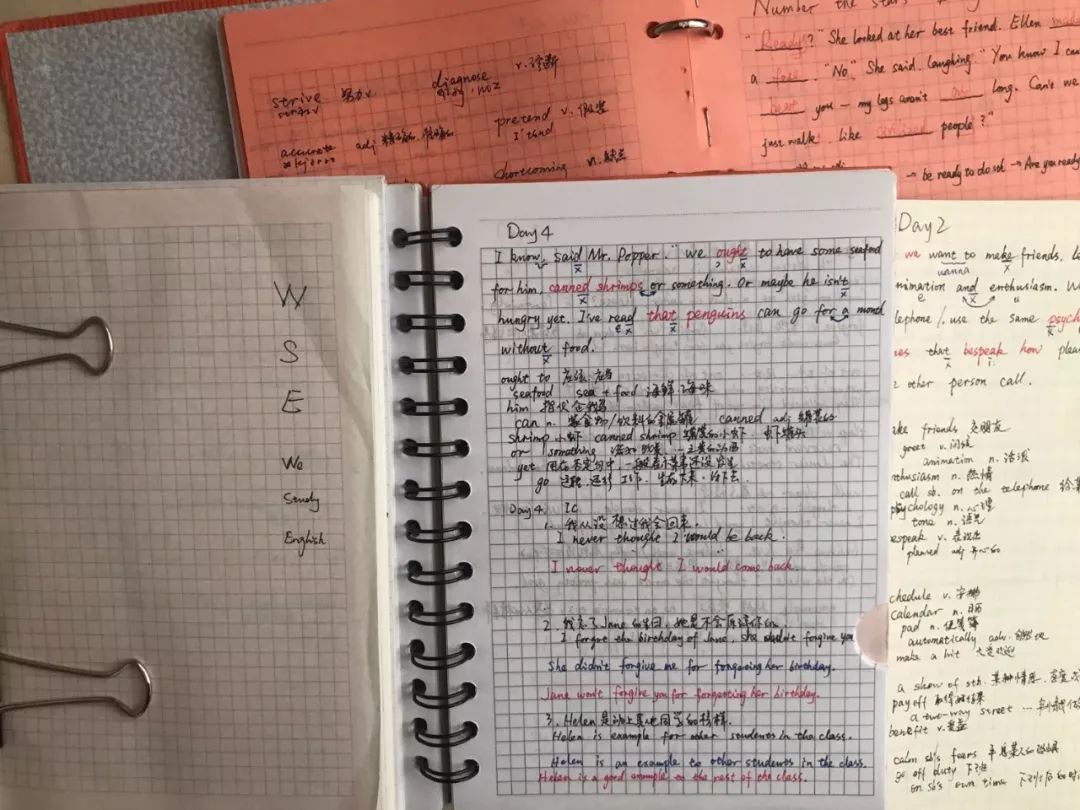 strive 努力 v.
diagnose v. 诊断
accurate adj 精确的
pretend v. 假装
shortcoming n. 缺点
Number the Stars
"Ready?" She looked at her best friend. Ellen
a face. "No" She said, laughing. "You know I can
beat you — my legs aren't as long. Can't we
just walk like people?"
→ be ready to do sth → Are you ready
W
S
E
We
Study
English
Day 4
I know, said Mr. Popper. "we ought to have some seafood
for him, canned shrimps or something. Or maybe he isn't
hungry yet. I've read that penguins can go for a month
without food."
ought to 应该 应当
seafood sea + food 海鲜 海味
him 指代企鹅
can n. 装食物/饮料的金属罐 canned adj 罐装的
shrimp 小虾 canned shrimp 罐装的小虾 虾罐头
or something
yet 用在否定句中,
go
Day 4. IC
1. 我从没想过我会回来.
I never thought I would be back.
I never thought I would come back
2. 我忘了Jane的生日, 她是不会原谅你的.
I forget the birthday of Jane, she forgive you
She didn't forgive me for forgetting her birthday.
Jane won't forgive you for forgetting her birthday.
3. Helen是班上其他同学的榜样.
Helen is example for other students in the class.
Helen is an example to other students in the class.
Helen is a good example to the rest of the class.
Day 2
we want to make friends.
wanna
nimation and enthusiasm.
lephone /. use the same psych
es that bespeak how plea
other person call.
ake friends 交朋友
greet v. 问候
animation n. 活泼
nthusiasm n. 热情
call sb. on the telephone 给某
psychology n. 心理
tone n. 语气
espeak v.
pleased adj 开心的
chedule v. 安排
calendar n. 日历
pad n. 便笺簿
automatically adv. 自动地
make a hit 大受欢迎
a show of sth. 某种情感.
pay off 取得好结果
a two-way street ...
benefit v. 受益
calm sb's fears
go off duty 下班
on sb's own time